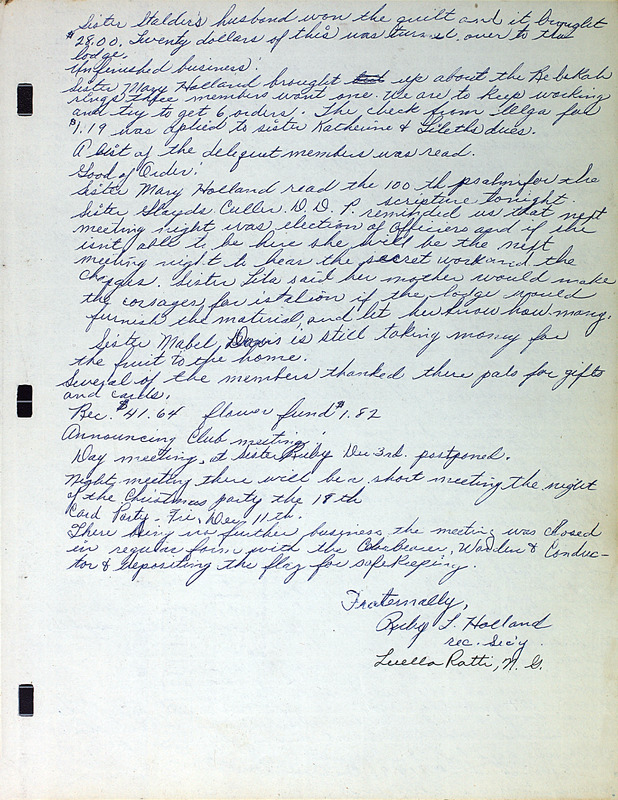 Sister Stalder's husband won the quilt and it brought
$28.00. Twenty dollars of this was turned over to the
lodge.
Unfinished business:
Sister Mary Holland brought up about the Rebekah
rings three members want one. We are to keep working
and try to get 6 orders. The check from Helga for
$1.19 was aplied to sister Katherine & Lileths dues.
A list of the deliquet members was read.
Good of Order:
Sister Mary Holland read the 100 th psalm for the
scripture tonight.
Sister Gladys Culler D. D. P. reminded us that next
meeting night was election of officers and if she
isnt able to be here she will be the next
meeting night to hear the secret work and the
charges. Sister Lita said her mother would make
the corsages for istalion if the lodge would
furnish the material and let her know how many.
Sister Mabel Davis is still taking money for
the fruit to the home.
Several of the members thanked there pals for gifts
and cards.
Rec. $41.64 flower fund $1.82
Announcing Club meeting:
Day meeting, at Sister Ruby Dec 3rd. postponed.
Night meeting there will be a short meeting the night
of the Christmas party the 18 th
Card Party - Fri, Dec, 11 th.
There being no further business the meeting was closed
in regular form with the Colorbearer, Warden & Conduc-
tor & depositing the flag for safekeeping.
Fraternally,
Ruby L. Holland
rec. Sec'y
Luella Ratti, N. G.